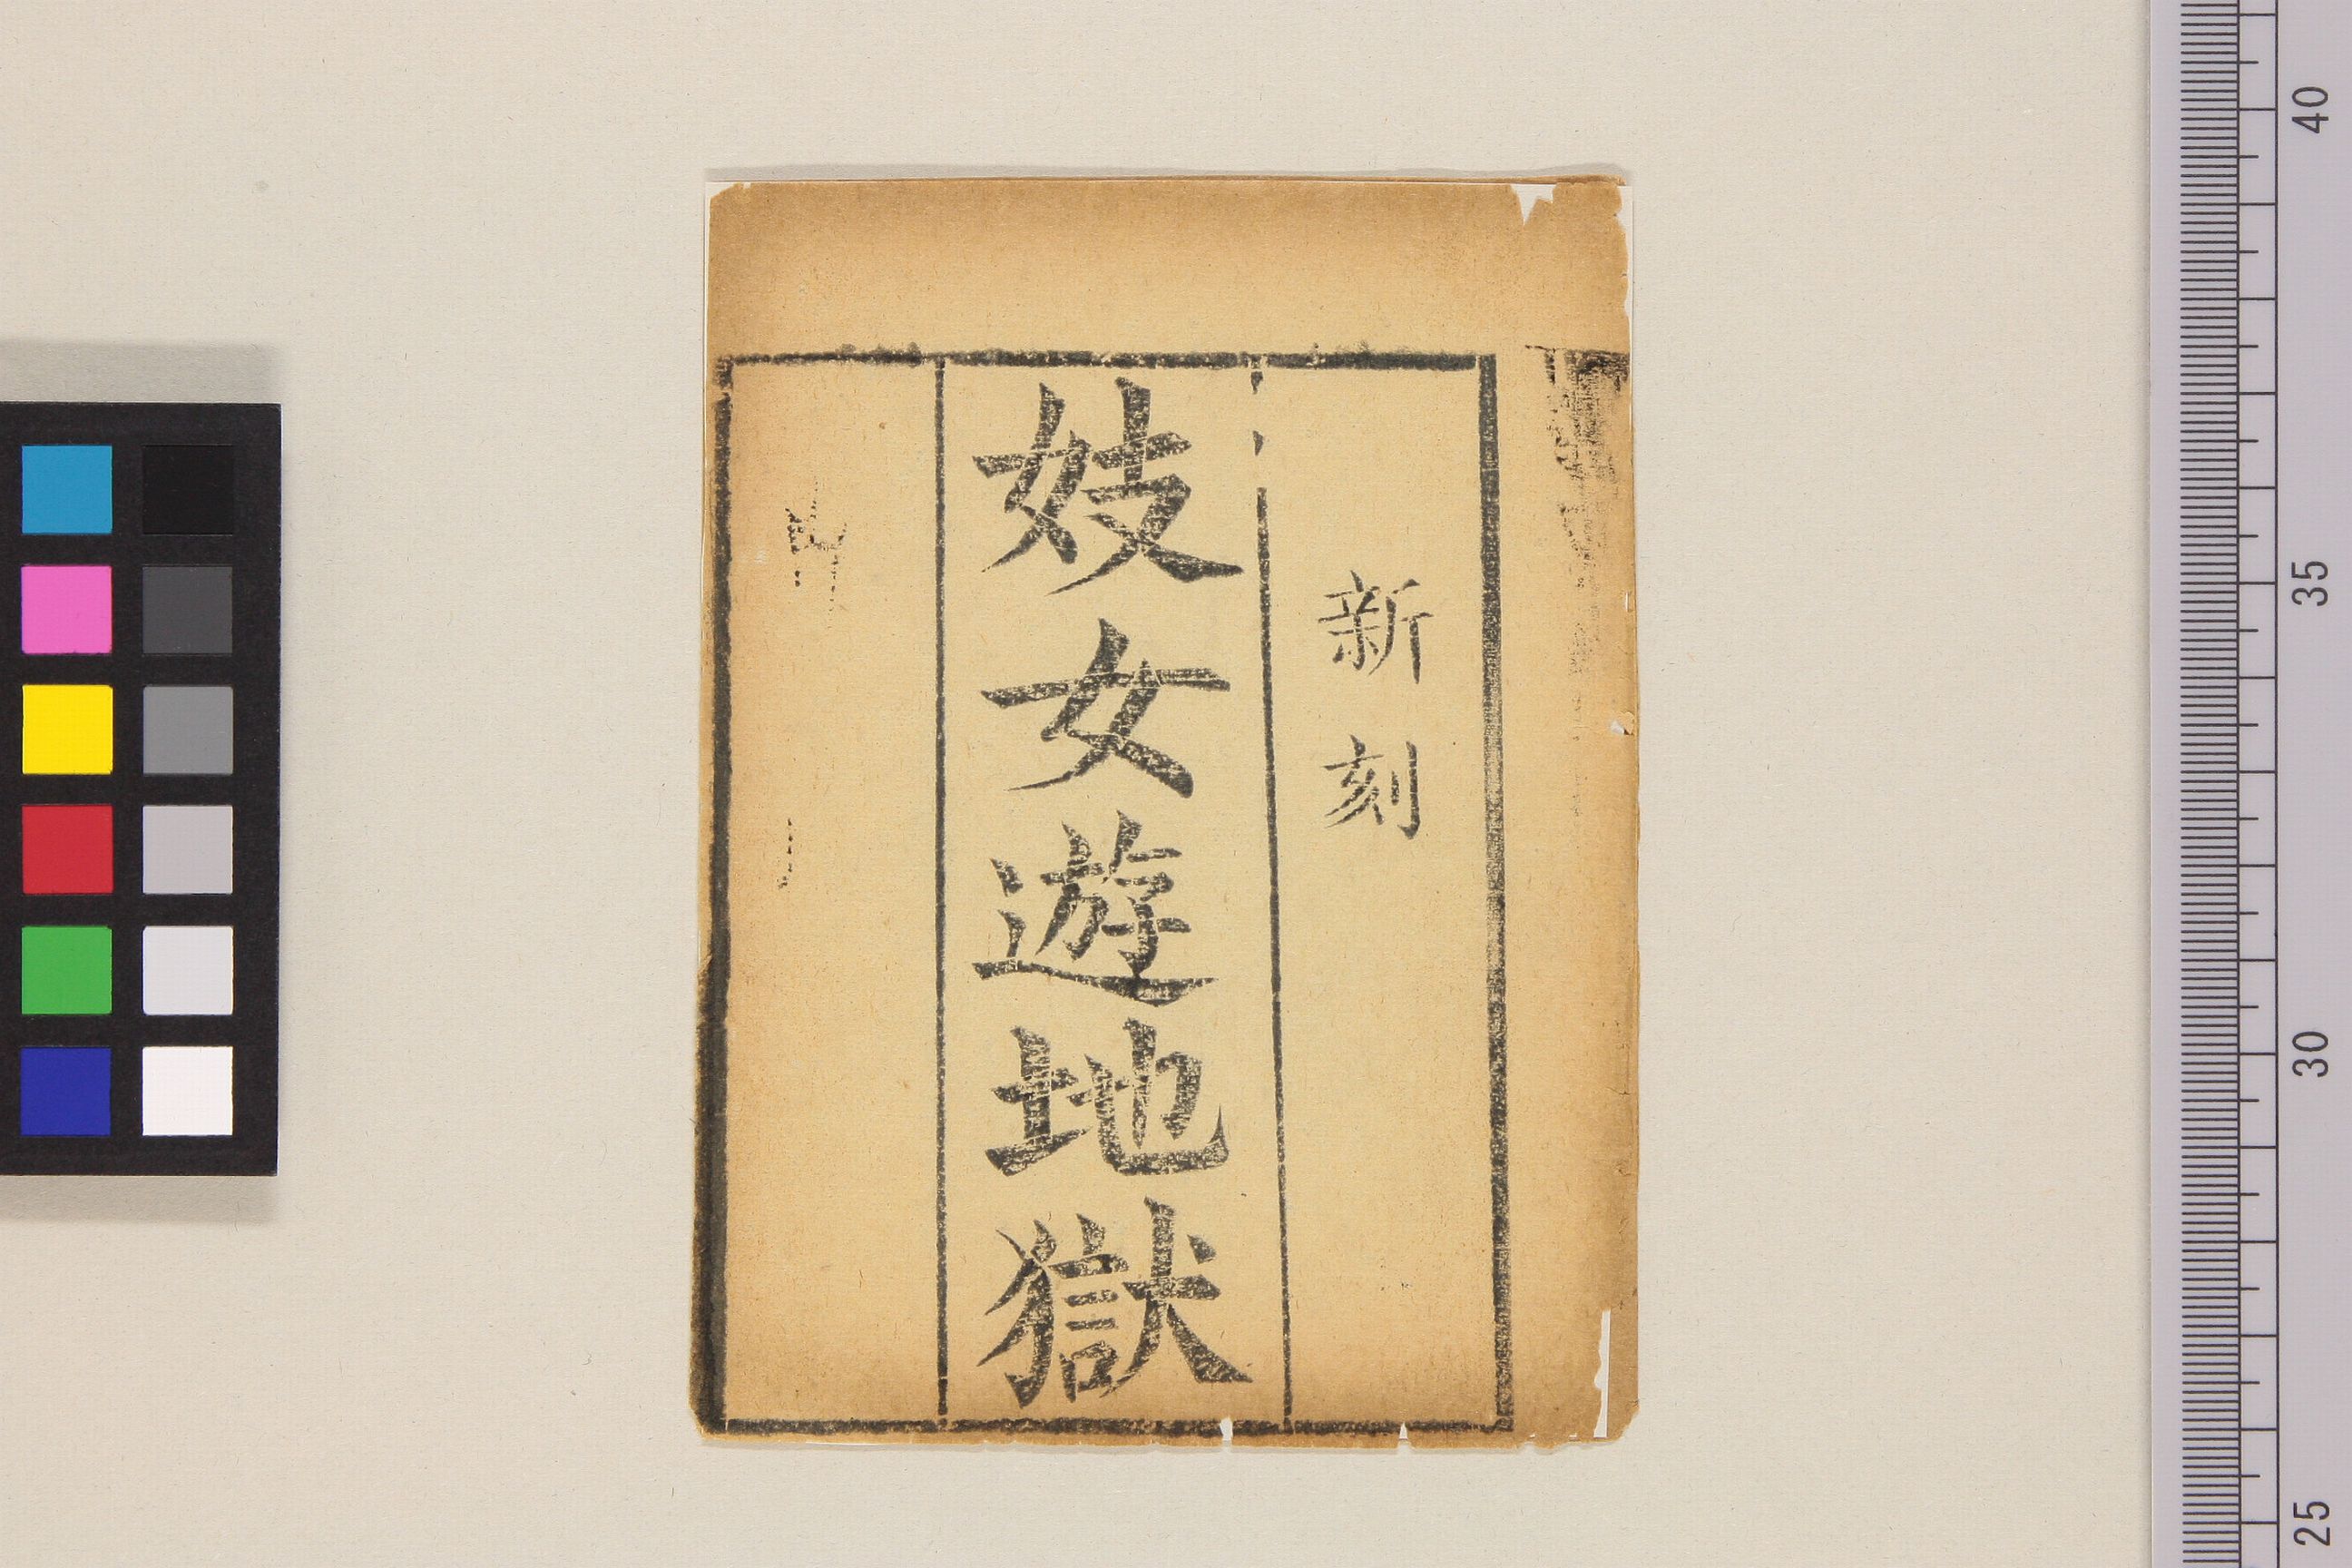 新刻
妓女遊地獄
40
35
30
25